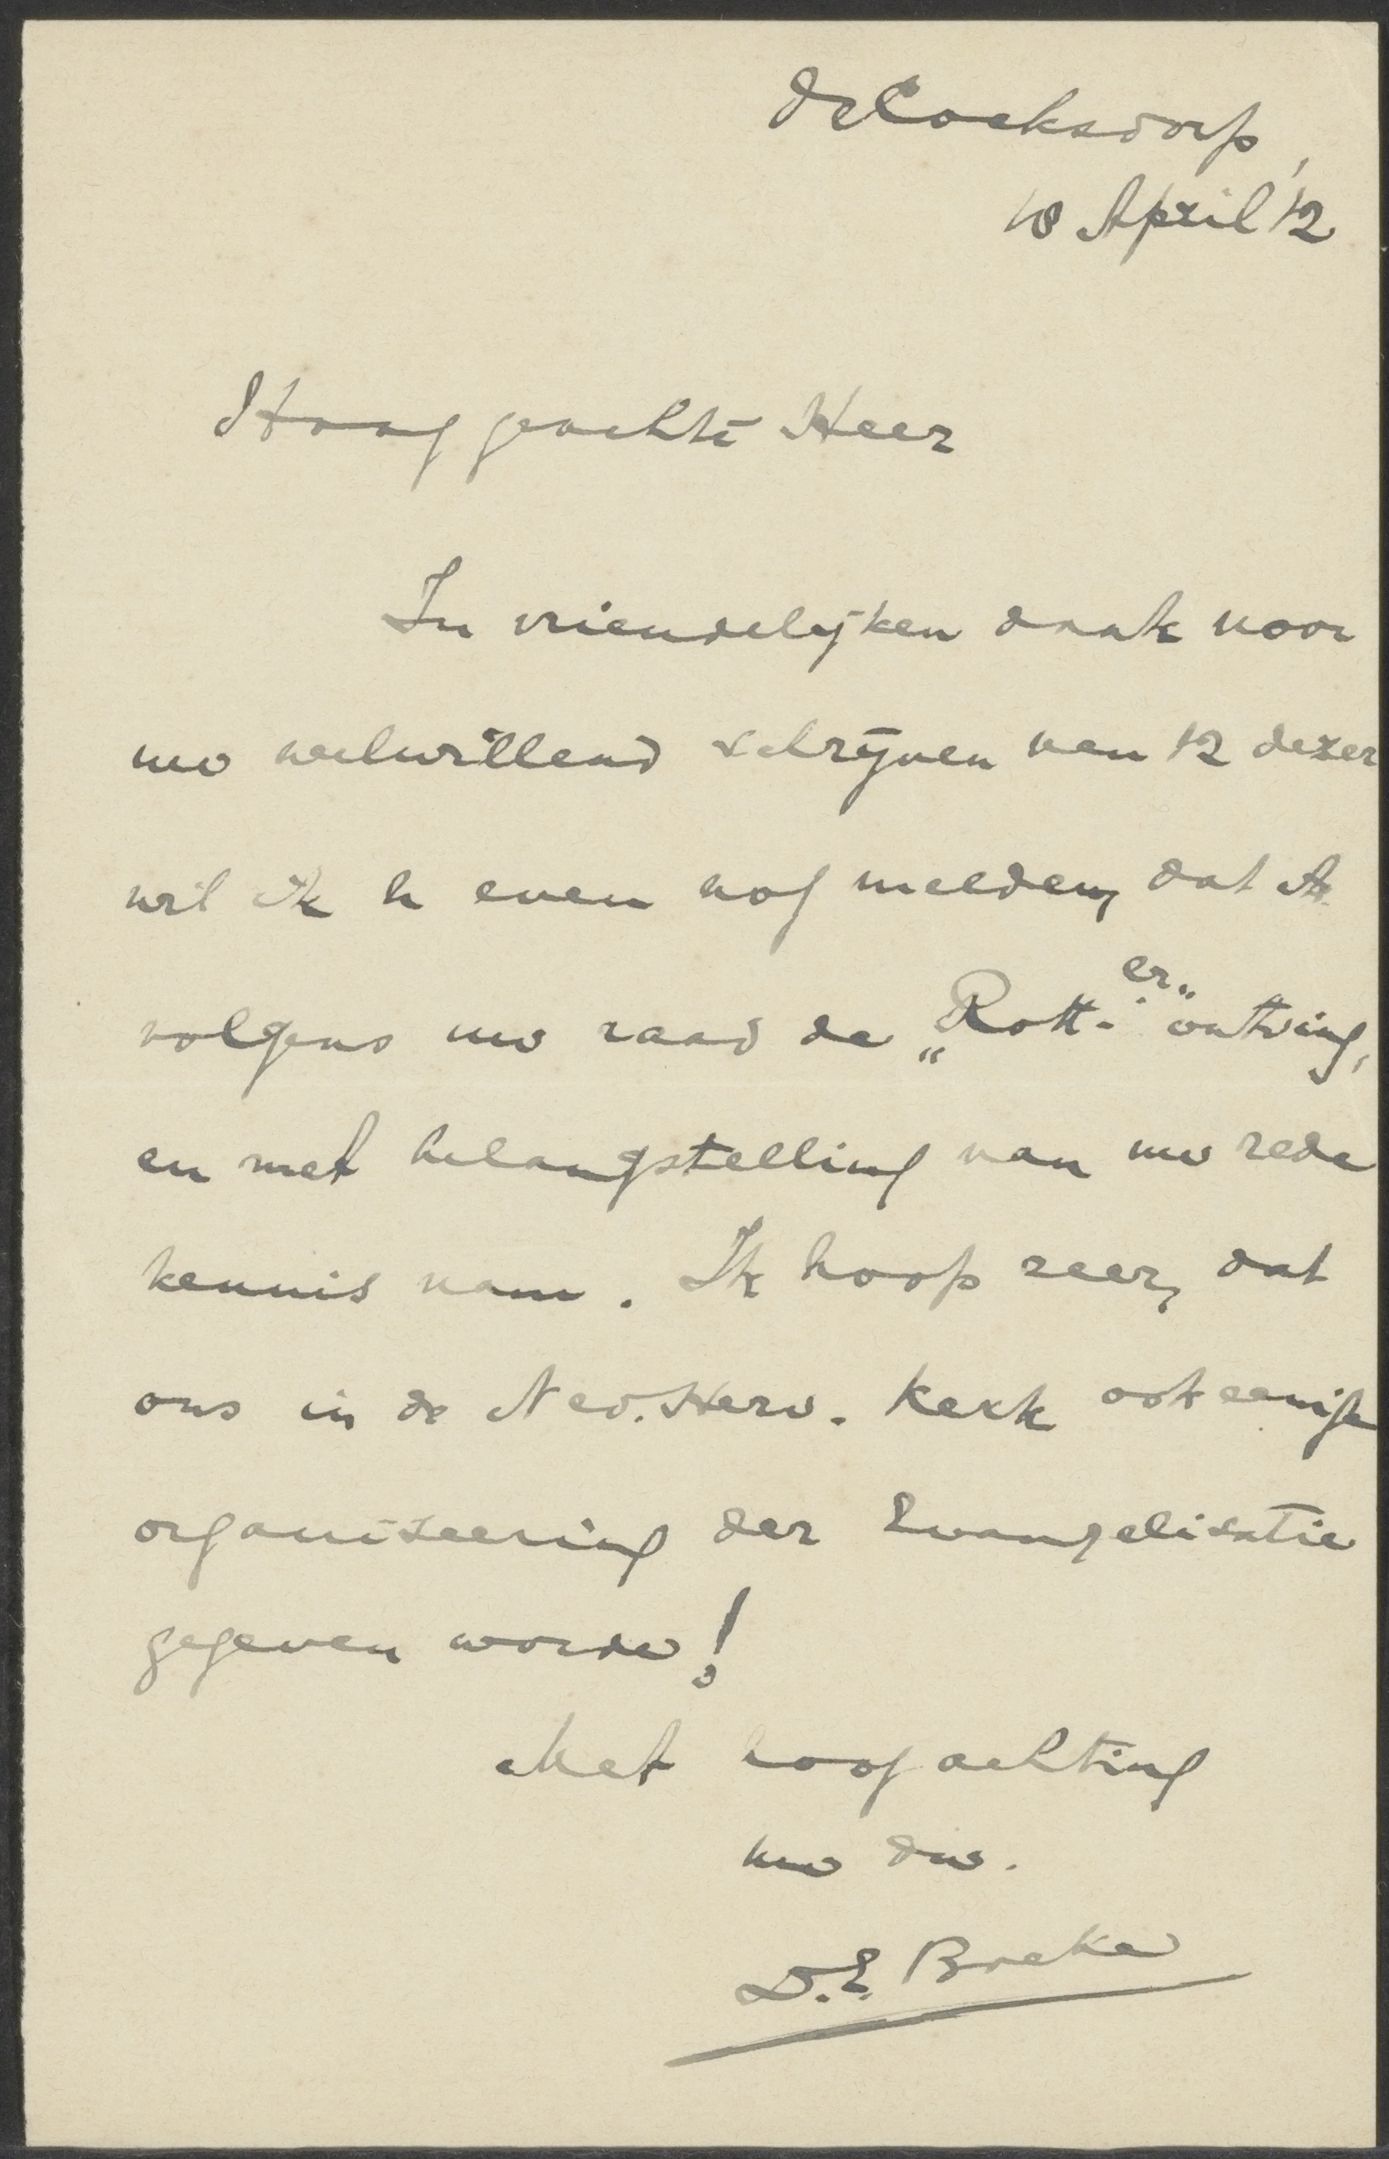 de Cocksdorp,
18 April '12
Hooggeachte Heer
In vriendelijken dank voor
uw welwillend schrijven van 12 dezer
wil ik U even nog melden, dat ik
volgens uw raad de „Rott.er” ontving,
en met belangstelling van uw rede
kennis nam. Ik hoop zeer, dat
ons in de Ned. Herv. Kerk ook eenige
organiseering der Evangelisatie
gegeven worde!
Met hoogachting
uw dw.
D.E. Boeke